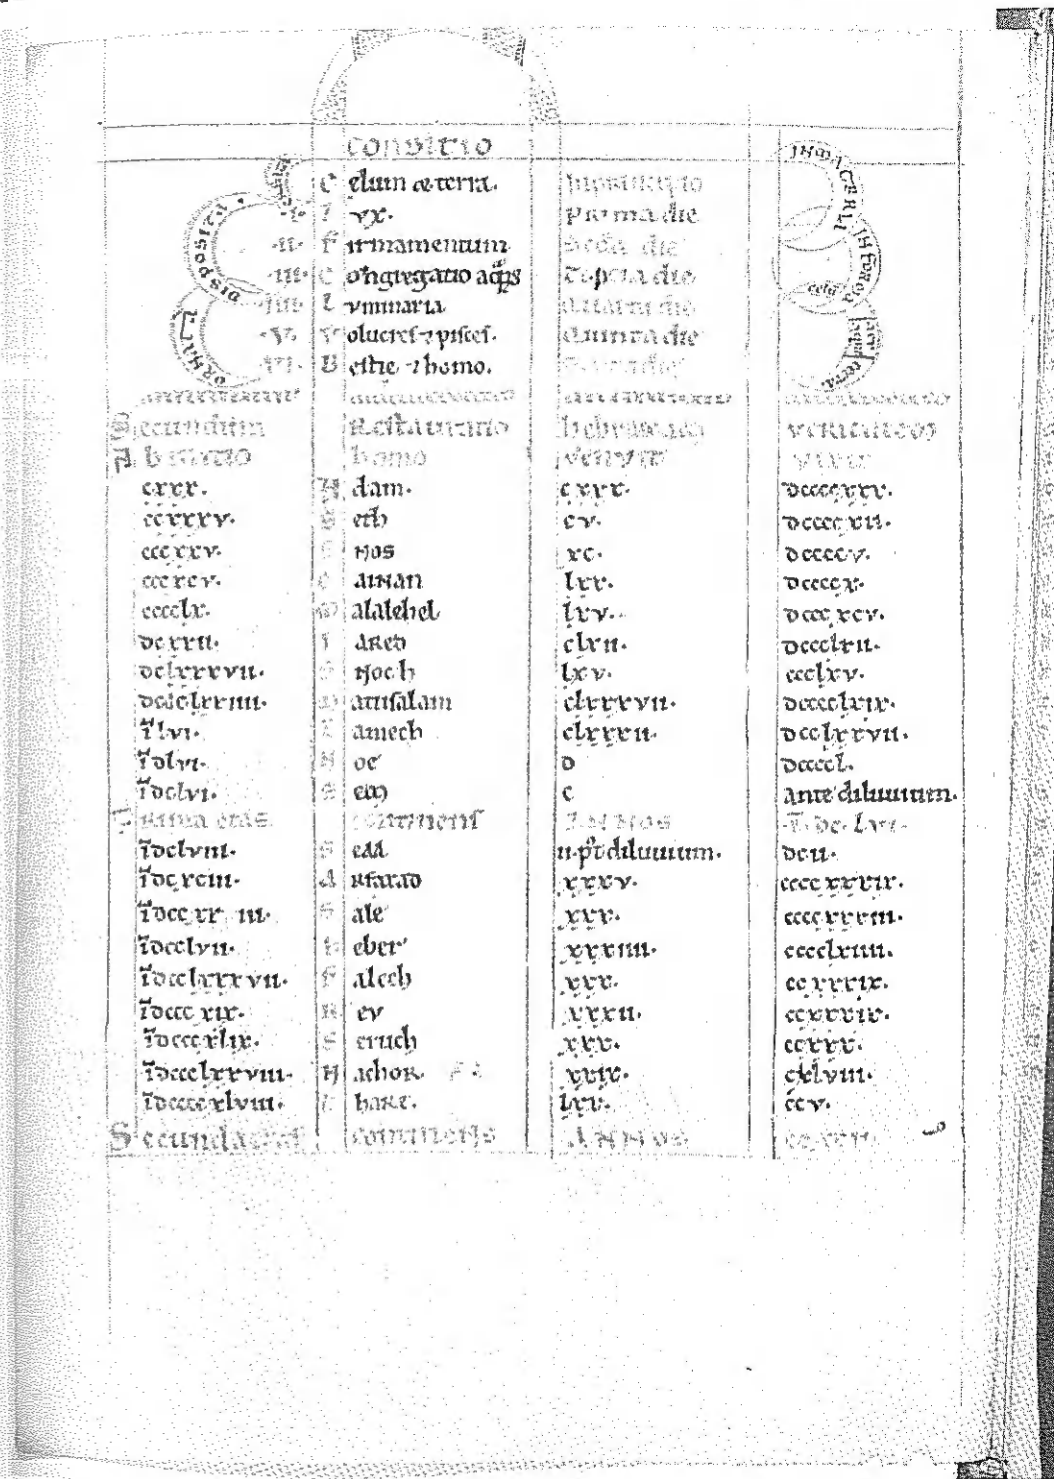 CONDITIO
Celum & terra. In principio
.I. Lvx. Prima die
.II. Firmamentum Scda die
.III. Congregatio aqrs Tercia die
.IIII. Lvminaria Quarta die
.V. Volucres ⁊ pisces. Quinta die
.VI. Bestie ⁊ homo. Sexta die
DISPOSITA.
ORNATA
IN MATERIA
IN FORMA
celū
aere
aqua
terra.
Secundum Restauratio hebraicam
Ab initio homo vixit
cxxx. Adam. cxxx. dccccxxx.
ccxxxv. Seth cv. dccccxii.
cccxxv. Enos xc. dccccv.
cccxcv. Cainan lxx. dccccx.
cccclx. Malalehel lxv. dcccxcv.
dcxxii. Iared clxii. dcccclxii.
dclxxxvii. Enoch lxv. ccclxv.
Matusalam clxxxvii. dcccclxix.
īlvi. Lamech clxxxii. dcclxxvii.
īdlvi. Noe d dccccl.
īdclvi. Sem c ante diluuium.
Prima etas continens ANNOS .ī. dc. lvi.
īdclviii. Sem ii. pt diluuium. dcii.
īdcxciii. Arfaxad xxxv. ccccxxxix.
īdccxxiii. Sale xxx. ccccxxxiii.
īdcclvii. Heber xxxiiii. cccclxiiii.
īdcclxxxvii. Falech xxx. ccxxxix.
īdcccxix. Rev xxxii. ccxxxix.
īdcccxlix. Seruch xxx. ccxxx.
īdccclxxviii. Nachor. xxix. cxlviii.
īdccccxlviii. Thare. lxx. ccv.
Secunda etas continens ANNOS